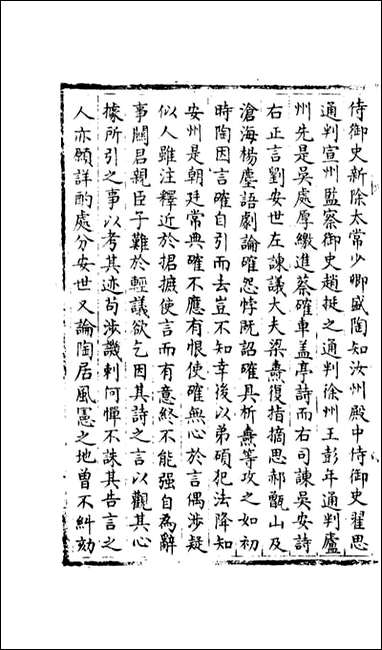 侍御史新除太常少卿盛陶知汝州殿中侍御史翟思
通判宣州監察御史趙挺之通判徐州王彭年通判廬
州先是吳處厚繳進蔡確車盖亭詩而右司諫吳安詩
右正言劉安世左諫議大夫梁燾復指摘思郝甑山及
滄海楊塵語劇論確怨悖既詔確具析燾等攻之如初
時陶因言確自引而去豈不知幸後以弟碩犯法降知
安州是朝廷常典確不應有恨使確無心於言偶涉疑
似人雖注釋近於捃摭使言而有意終不能强自為辭
事闗君親臣子難於輕議欲乞因其詩之言以觀其心
據所引之事以考其迹苟涉譏刺何憚不誅其告言之
人亦願詳酌處分安世又論陶居風憲之地曾不糾劾